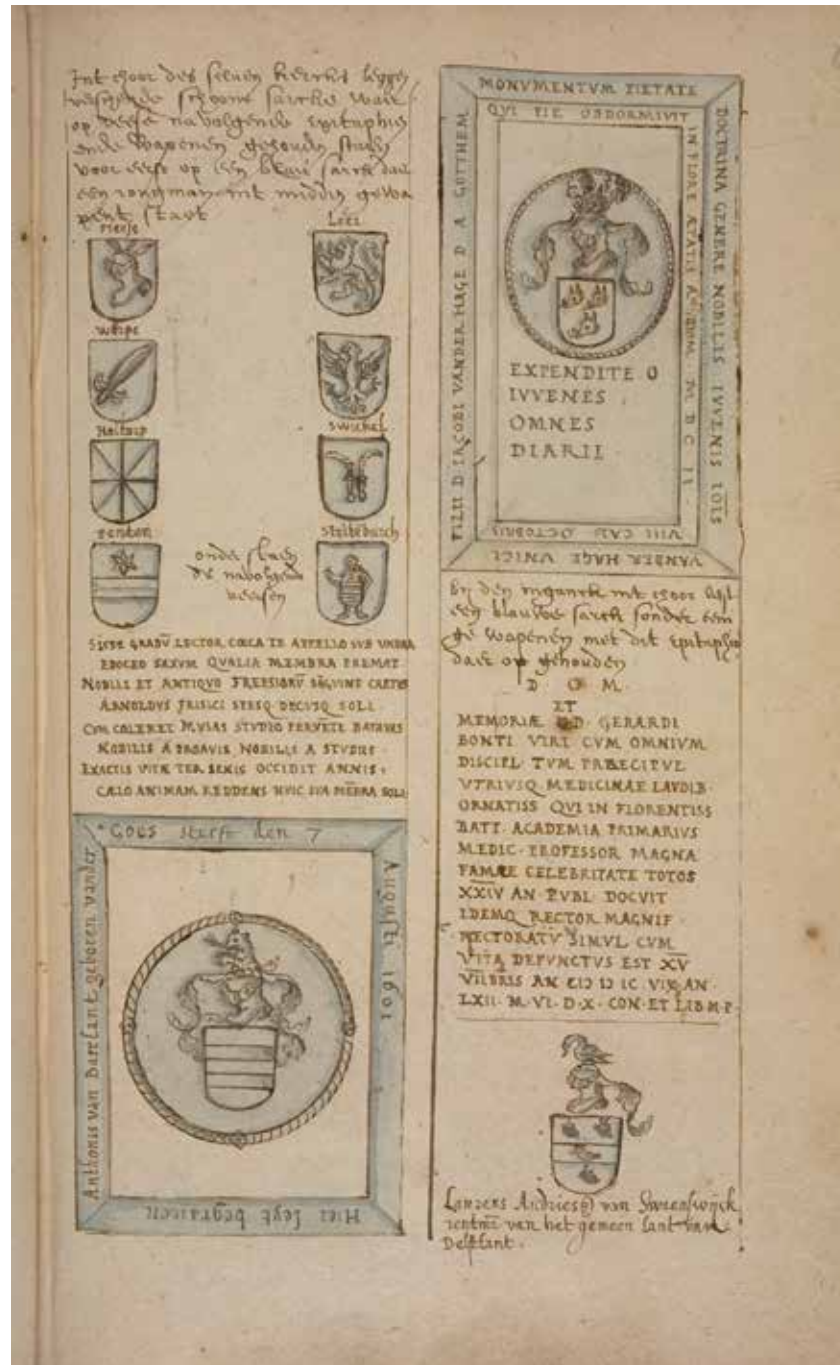 Int choor des seluen kercks leggen
verscheyde schoone sarcken waer
op deese navolgende epitaphien
ende wapenen gehouden staen
voor eerst op een blauw sarck daer
een jongman int midden gewa
pent staet
Loer
worpe
Swichel
onder staen
de navolgende
veersen
SISTE GRADŪ LECTOR CŒCA TE APPELLO SUB UMBRA
EDOCEO SAXUM QUALIA MEMBRA PREMAT
NOBILIS ET ANTIQVO FREESIORŪ SĀGUINE CRETUS
ARNOLDVS FRISICI SPESQ DECUSQ SOLI
CUM COLERET MVSAS STVDIO FERVĒTE BATAVAS
NOBILIS A PROAVIS NOBILIS A STUDIIS
EXACTIS VITÆ TER SENIS OCCIDIT ANNIS
CÆLO ANIMAM REDDENS HUIC SUA MĒBRA SOLI
Hier leyt begraven
Anthonis van Baerlant geboren vander
Goes sterft den 7
Augusti 1601
MONVMENTVM PIETATE
DOCTRINA GENERE NOBILIS IUVENIS
VANDER HAGE VNICI
FILII D IACOBI VANDER HAGE D A GOTTHEM
QUI PIE OBDORMIVIT
IN FLORE ÆTATIS M D C II
VIII CAL OCTOBRIS
EXPENDITE O
IVVENES
OMNES
DIARII
In den inganck int choor leyt
een blauwe sarck sonder eeni
ge wapenen met dit epitaphie
daer op gehouden
D O M
ET
MEMORIÆ D GERARDI
BONTI VIRI CVM OMNIVM
DISCIPL TVM PRÆCIPVE
VTRIVSQ MEDICINAE LAVDIB
ORNATISS QUI IN FLORENTISS
BATT ACADEMIA PRIMARIVS
MEDIC PROFESSOR MAGNA
FAMÆ CELEBRITATE TOTOS
XXIV AN PVBL DOCVIT
IDEMQ RECTOR MAGNIF
RECTORATV SIMVL CVM
VITA DEFVNCTVS EST XV
VIIBRIS AN CIↃ IↃ IC VIX AN
LXII M VI D X CON ET LIB M P
Lourens Andriesz van Sweenswijck
rentmr van het gemeen lant van
Delflant